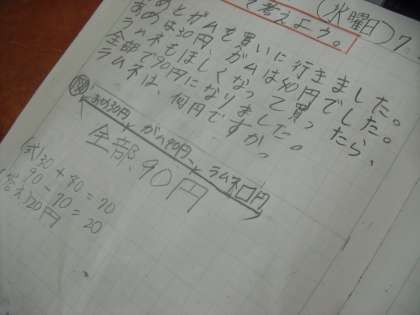 (水曜日) 7.
て考えよう。
あめとガムを買いに行きました。
あめは30円、ガムは40円でした。
ラムネもほしくなって買ったら、
全部で90円になりました。
ラムネは、何円ですか。
図
あめ30円 ガム40円 ラムネ□円
全部、90円
(式)30+40=70
90-70=20
答え20円